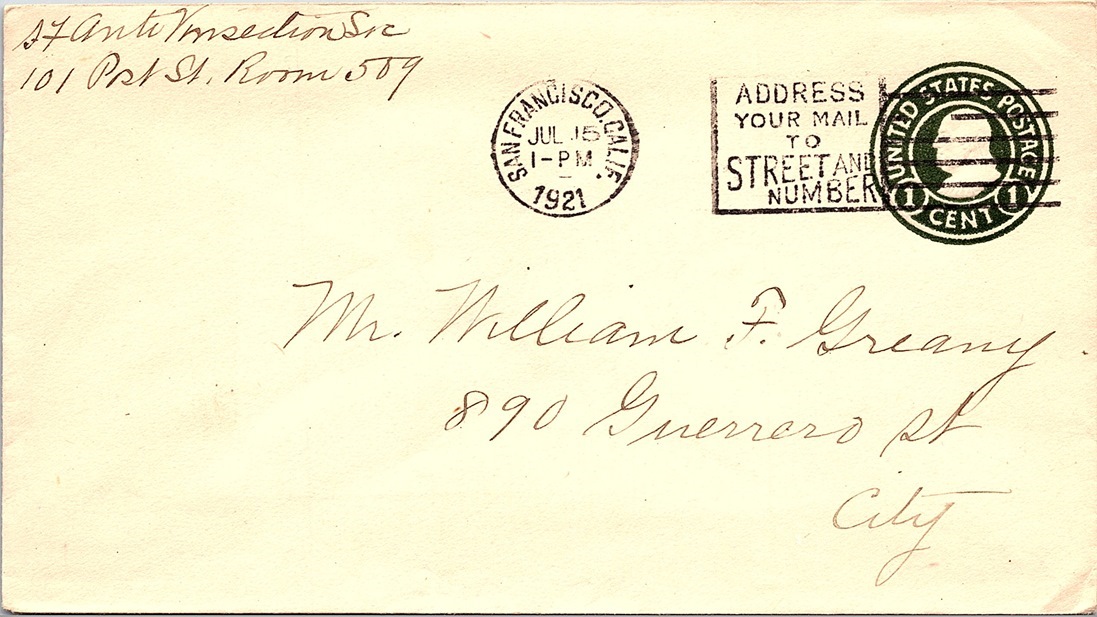 SF Anti Vivsection Soc
101 Post St. Room 509
SAN FRANCISCO, CALIF.
JUL 15
1-PM
1921
ADDRESS
YOUR MAIL
TO
STREET AND
NUMBER
UNITED STATES POSTAGE
1 CENT 1
Mr. William F. Greany
890 Guerrero St
City